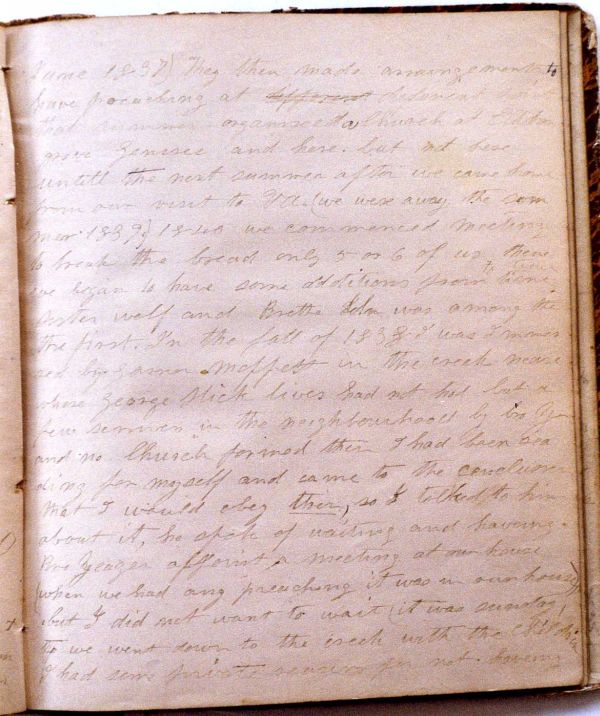 June 1837) They then made arraingements to
have preaching at different different
that summer organised a Church at
grove Genesee and here. but not here
untill the next summer after we came home
from our visit to Va. (we were away the som
mer 1839) 1840 we commenced meeting
to break the bread only 5 or 6 of us, there
we began to have some additions from time to time
sister wolf and Brother was among the
the first. In the fall of 1838 I was Immer
sed by Garner Moffett in the creek near
where George Slick lives had not had but a
few sermon in the neighbourhood by bro
and no Church formed then I had been rea
ding for myself and came to the conclusion
that I would obey then, so I talked to him
about it, he spok of waiting and haveing
Bro Yeager affoint a meeting at our house
(when we had any preaching it was in our house)
but I did not want to wait (it was sunday)
so we went down to the creek with the Childr
I had som private reasons for not haveing